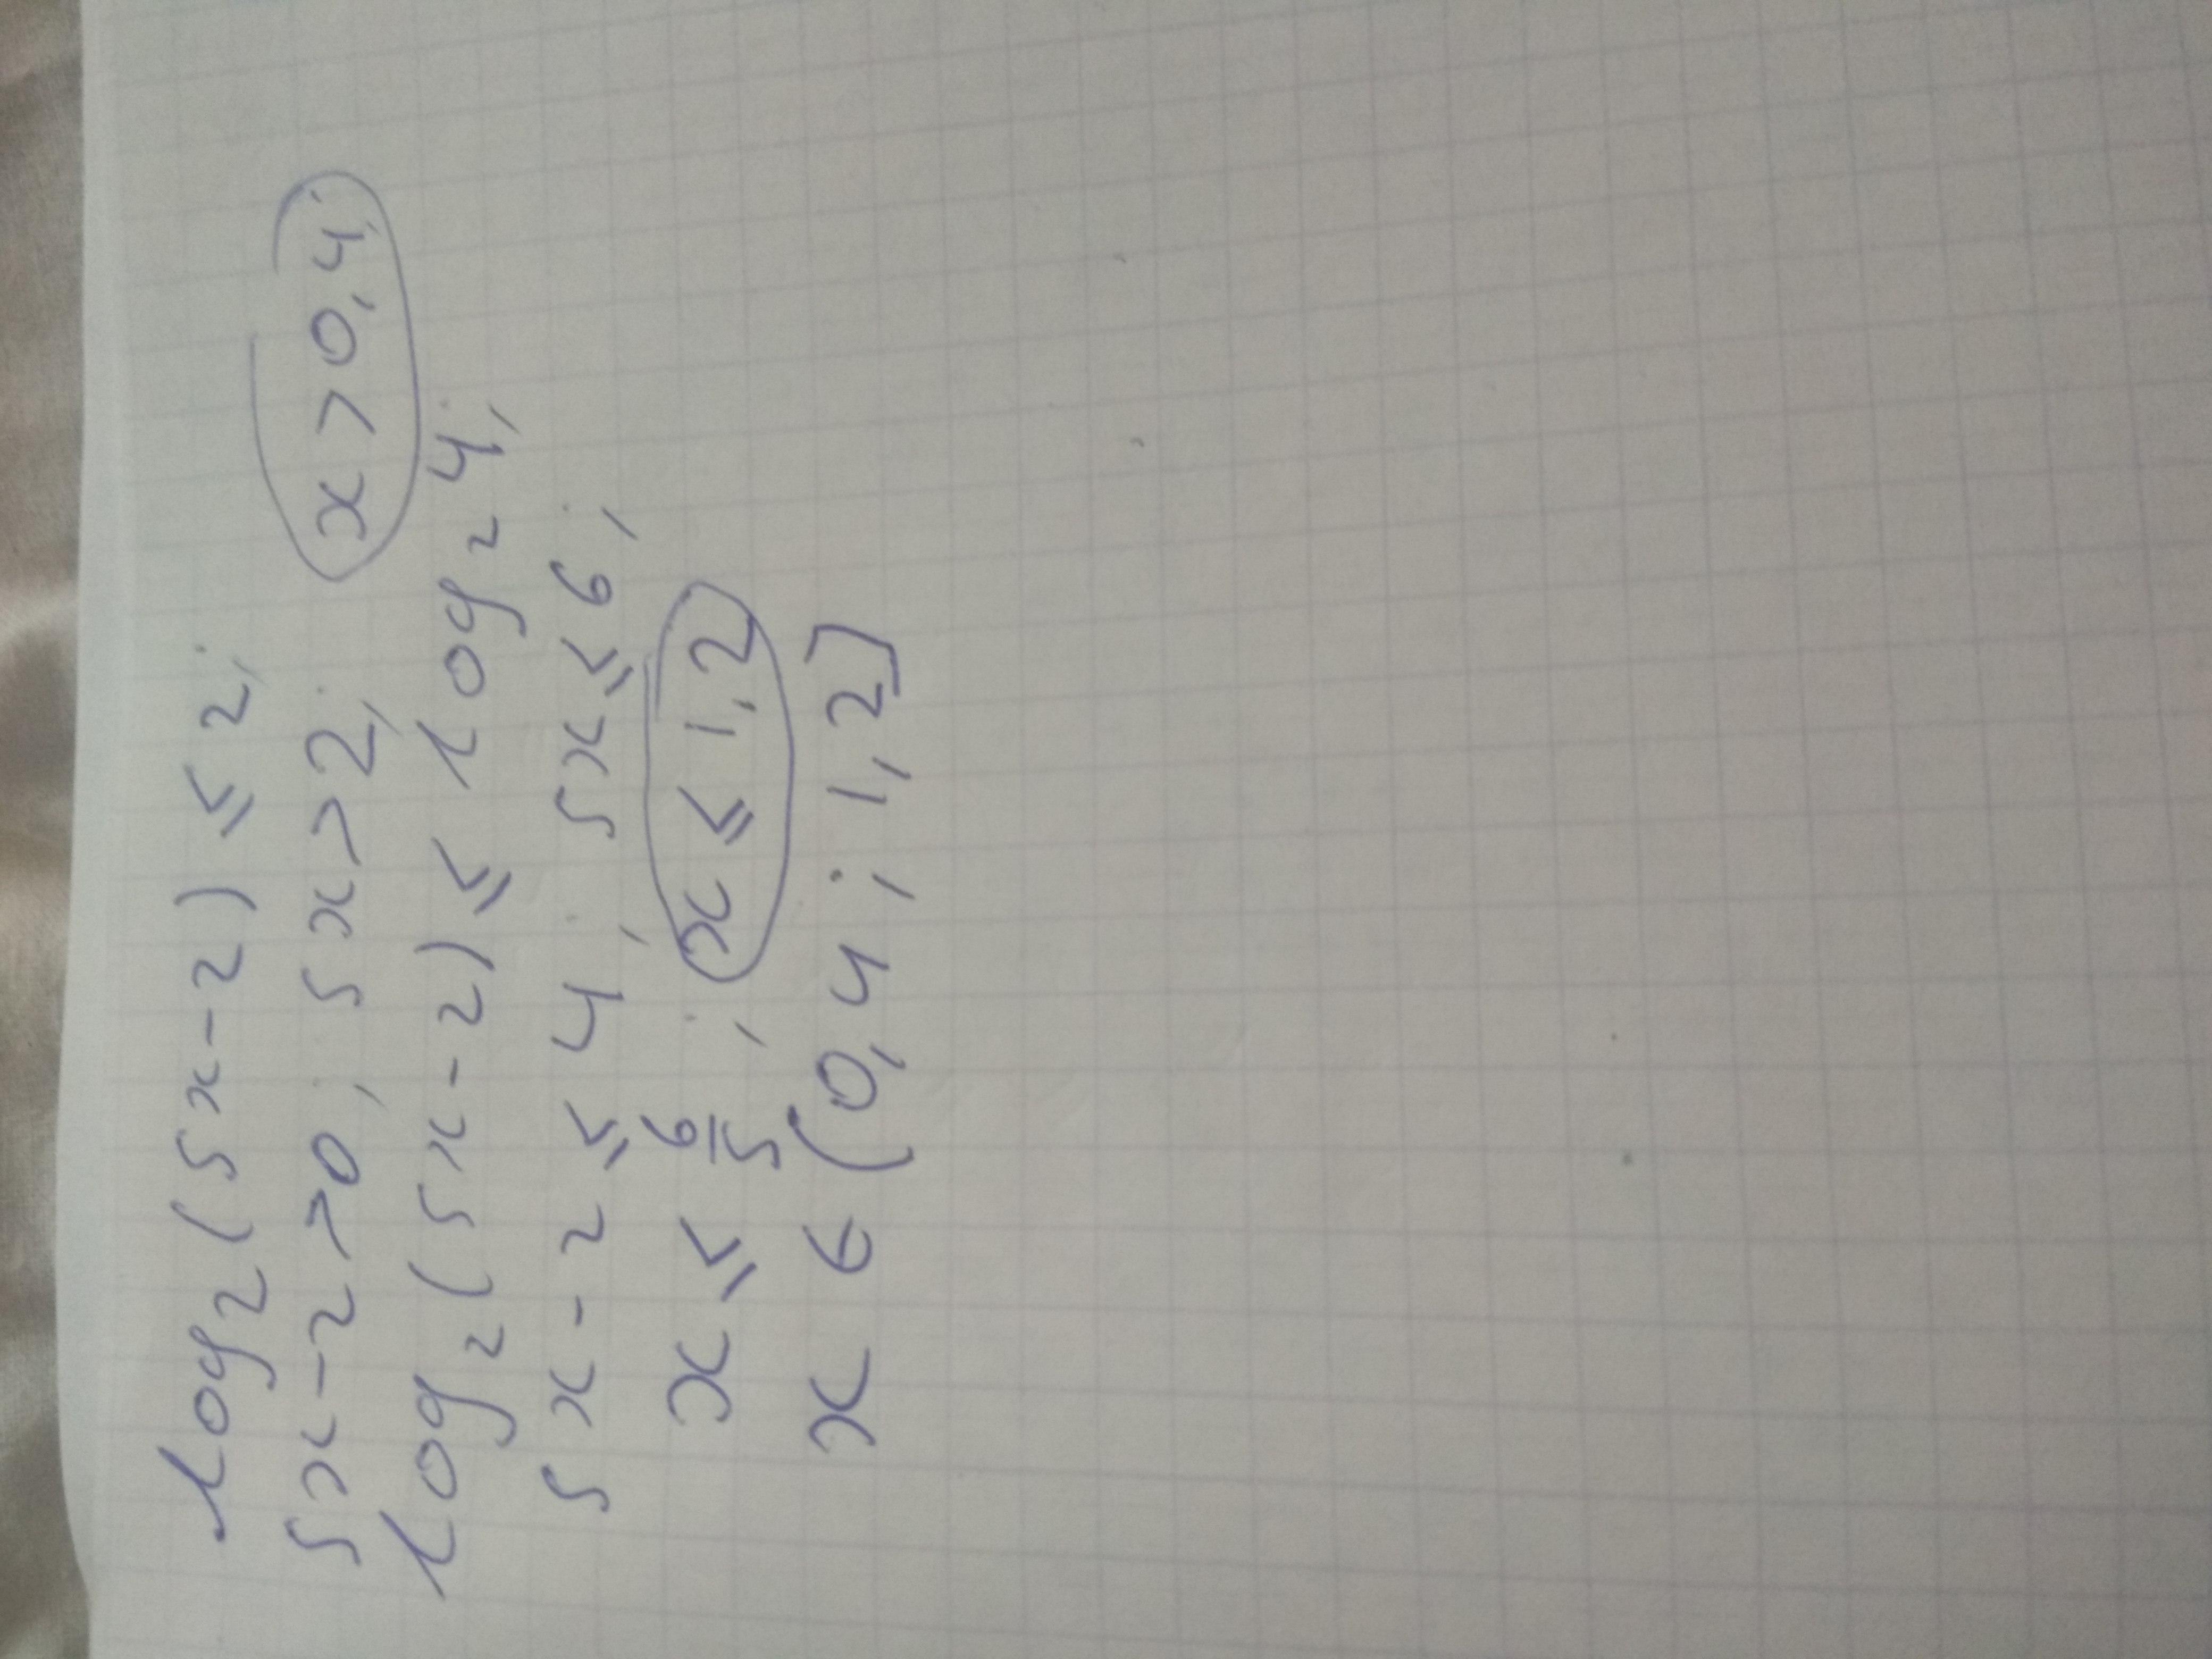 log₂(5x-2) ⩽ 2;
5x-2>0; 5x>2; x>0,4;
log₂(5x-2) ⩽ log₂4;
5x-2 ⩽ 4; 5x ⩽ 6;
x ⩽ 6/5; x ⩽ 1,2
x ∈ (0,4; 1,2]